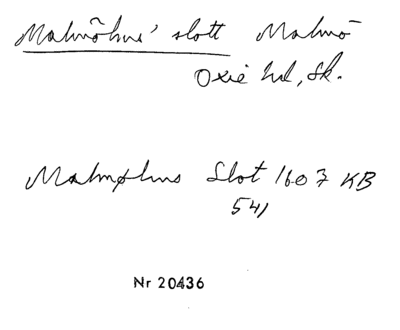 Malmöhus' slott Malmö
Oxie hd, Sk.
Malmøhus Slot 1607 KB
541
Nr 20436